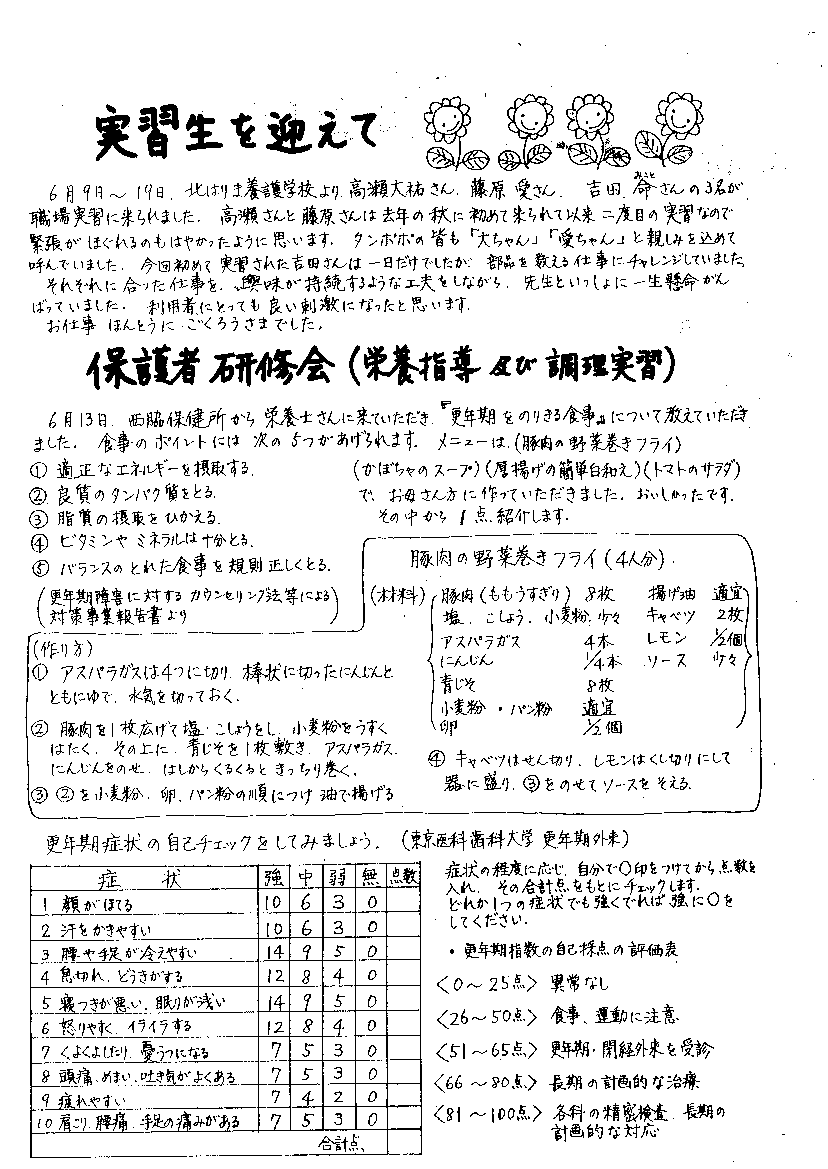 実習生を迎えて
6月9日〜19日、北はりま養護学校より、高瀬大祐さん、藤原愛さん、吉田命さんの3名が
みこと
職場実習に来られました。高瀬さんと藤原さんは去年の秋に初めて来られて以来二度目の実習なので
緊張がほぐれるのもはやかったように思います。タンポポの皆も「大ちゃん」「愛ちゃん」と親しみを込めて
呼んでいました。今回初めて実習された吉田さんは一日だけでしたが、部品を数える仕事にチャレンジしていました。
それぞれに合った仕事を、興味が持続するような工夫をしながら、先生といっしょに一生懸命がん
ばっていました。利用者にとっても良い刺激になったと思います。
お仕事ほんとうにごくろうさまでした。
保護者研修会(栄養指導及び調理実習)
6月13日、西脇保健所から栄養士さんに来ていただき、『更年期をのりきる食事』について教えていただき
ました。食事のポイントには次の5つがあげられます。メニューは、(豚肉の野菜巻きフライ)
(かぼちゃのスープ)(厚揚げの簡単白和え)(トマトのサラダ)
で、お母さん方に作っていただきました。おいしかったです。
その中から1点、紹介します。
① 適正なエネルギーを摂取する。
② 良質のタンパク質をとる。
③ 脂質の摂取をひかえる。
④ ビタミンやミネラルは十分とる。
⑤ バランスのとれた食事を規則正しくとる。
(更年期障害に対するカウンセリング法等による
対策事業報告書より)
豚肉の野菜巻きフライ(4人分)
(材料) 豚肉(ももうすぎり) 8枚 揚げ油 適宜
塩、こしょう、小麦粉 少々 キャベツ 2枚
アスパラガス 4本 レモン 1/2個
にんじん 1/4本 ソース 少々
青じそ 8枚
小麦粉・パン粉 適宜
卵 1/2個
(作り方)
① アスパラガスは4つに切り、棒状に切ったにんじんと
ともにゆで、水気を切っておく。
② 豚肉を1枚広げて塩・こしょうをし、小麦粉をうすく
はたく。その上に、青じそを1枚敷き、アスパラガス、
にんじんをのせ、はしからくるくるときっちり巻く。
③ ②を小麦粉、卵、パン粉の順につけ油で揚げる
④ キャベツはせん切り、レモンはくし切りにして
器に盛り、③をのせてソースをそえる。
更年期症状の自己チェックをしてみましょう。(東京医科歯科大学 更年期外来)
症状 強 中 弱 無 点数
1 顔がほてる 10 6 3 0
2 汗をかきやすい 10 6 3 0
3 腰や手足が冷えやすい 14 9 5 0
4 息切れ、どうきがする 12 8 4 0
5 寝つきが悪い、眠りが浅い 14 9 5 0
6 怒りやすく、イライラする 12 8 4 0
7 くよくよしたり、憂うつになる 7 5 3 0
8 頭痛、めまい、吐き気がよくある 7 5 3 0
9 疲れやすい 7 4 2 0
10 肩こり、腰痛、手足の痛みがある 7 5 3 0
合計点
症状の程度に応じ、自分で○印をつけてから点数を
入れ、その合計点をもとにチェックします。
どれか1つの症状でも強くでれば強に○を
してください。
・更年期指数の自己採点の評価表
〈0〜25点〉 異常なし
〈26〜50点〉 食事、運動に注意
〈51〜65点〉 更年期・閉経外来を受診
〈66〜80点〉 長期の計画的な治療
〈81〜100点〉 各科の精密検査、長期の
計画的な対応